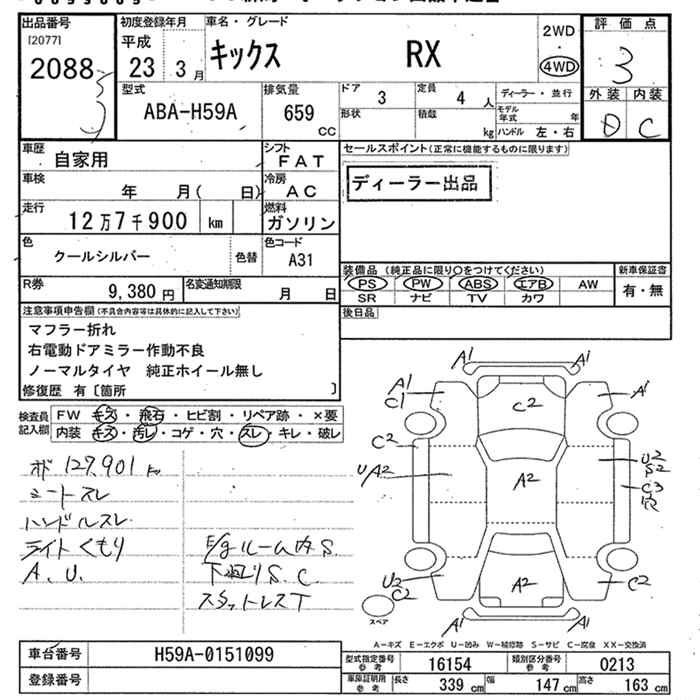 出品番号
[2077]
2088
初度登録年月
平成
23 3月
車名・グレード
キックス RX
2WD
4WD
評価点
3
外装 内装
D C
型式
ABA-H59A
排気量
659
cc
ドア
3
定員
4 人
ディーラー・並行
形状
積載
kg
モデル年式
年
ハンドル 左・右
車歴
自家用
シフト
FAT
セールスポイント(正常に機能するものに限ります)
ディーラー出品
車検
年 月( 日)
冷房
AC
走行
12万7千900 km
燃料
ガソリン
色
クールシルバー
色替
色コード
A31
装備品(純正品に限り○をつけてください)
新車保証書
PS PW ABS エアB AW
SR ナビ TV カワ
有・無
R券
9,380 円
名変通知期限
月 日
後日品
注意事項申告欄(不具合内容等は具体的に記入して下さい)
マフラー折れ
右電動ドアミラー作動不良
ノーマルタイヤ 純正ホイール無し
修復歴 有〔箇所 〕
検査員記入欄
FW キズ・飛石・ヒビ割・リペア跡・×要
内装 キズ・汚レ・コゲ・穴・スレ・キレ・破レ
オド 127.901 km
シートスレ
ハンドルスレ
ライトくもり
A.U.
E/gルーム内 S.
下廻り S.C.
スタットレス T
A1 A1
A1
C1
C2
A1
C2
UA2
A2
U2
S2
C3
U2
C2
A2
C2
A1 A1
スペア
A-キズ E-エクボ U-凹み W-補修跡 S-サビ C-腐食 XX-交換済
車台番号
H59A-0151099
登録番号
型式指定番号
参考
16154
類別区分番号
参考
0213
車庫証明用
参考
長さ
339 cm
幅
147 cm
高さ
163 cm